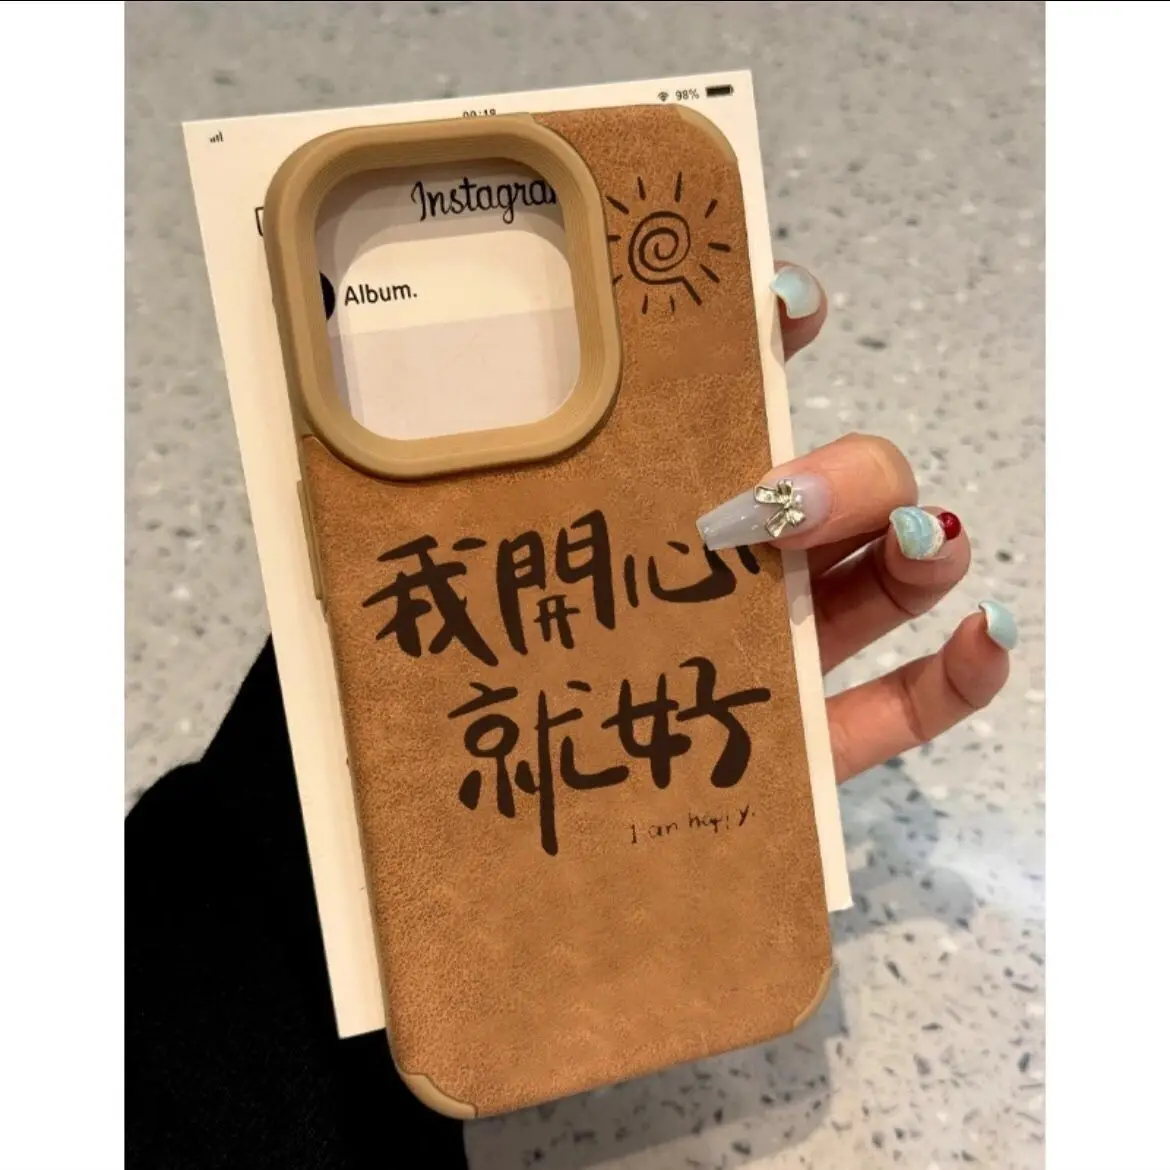 98%
09:18
Instagra
Album.
我開心
就好
I am happy.